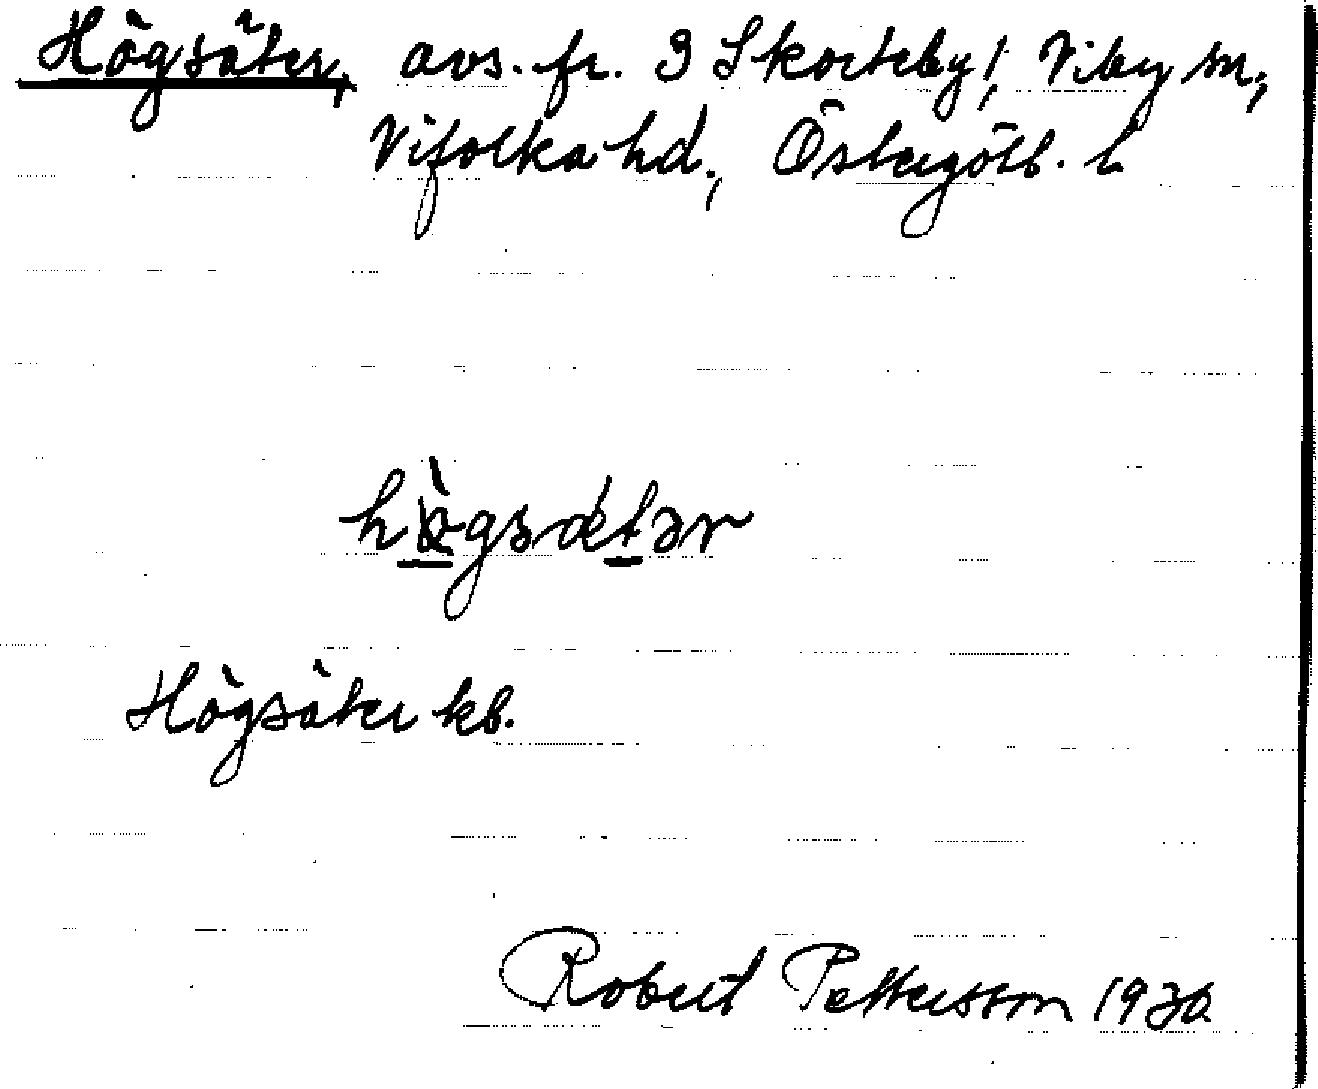 Högsäter, avs. fr. 3 Skorteby, Viby sn,
Vifolka hd., Östergötl. l.
hø̀gsǽtər
Högsäter kb.
Robert Pettersson 1930